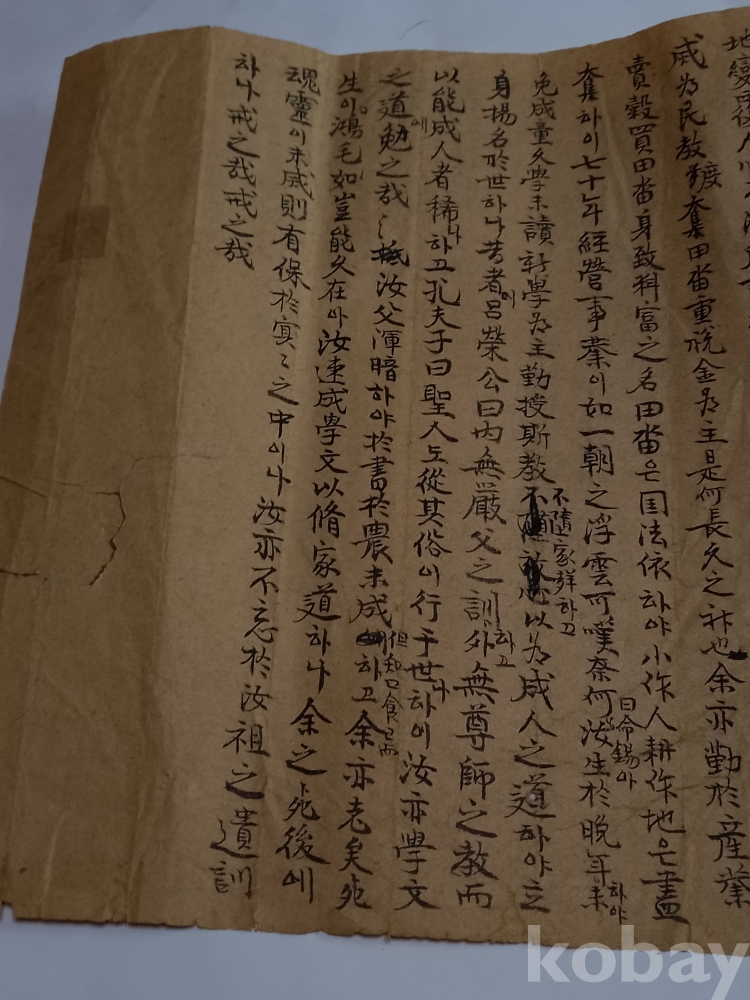 地變
成為民教 奪田畓重稅金為主是何長久之 也余亦勤於産業
賣穀買田畓身致科富之名田畓은国法依하야小作人耕作地은盡
奪하이七十年經營事業이如一朝之浮雲可嘆奈何 汝生於晩年未
曰命錫아
하야
免成童久學未讀新學為主勤授斯教 以為成人之道하야立
不墮家群하고
身揚名於世하나昔者에呂榮公曰內無嚴父之訓하고外無尊師之教而
以能成人者稀하고孔夫子曰聖人도從其俗이行于世하이汝亦學文
之道에勉之哉 汝父渾暗하야於書於農未成 하고余亦老矣死
但知口食已而
生이鴻毛如豈能久在아汝速成學文以脩家道하나余之死後에
魂靈이未滅則有保於冥々之中이나汝亦不忘於汝祖之遺訓
하나戒之哉戒之哉
kobay